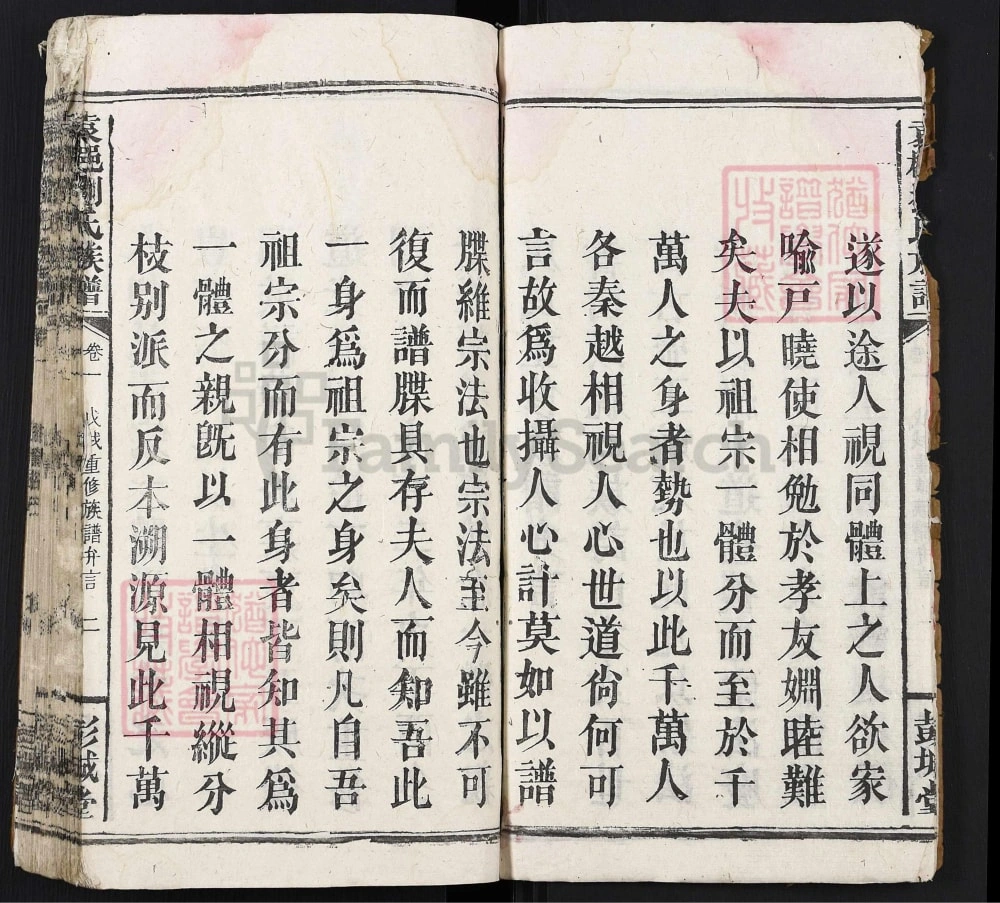 遂以途人視同體上之人欲家
喻戸曉使相勉於孝友婣睦難
矣夫以祖宗一體分而至於千
萬人之身者勢也以此千萬人
各秦越相視人心世道尙何可
言故爲收攝人心計莫如以譜
牒維宗法也宗法至今雖不可
復而譜牒具存夫人而知吾此
一身爲祖宗之身矣則凡自吾
祖宗分而有此身者皆知其爲
一體之親旣以一體相視縱分
枝别派而反本溯源見此千萬
袁邑劉氏族譜
卷一
重修族譜弁言
二
彭城堂
彭城堂
FamilySearch